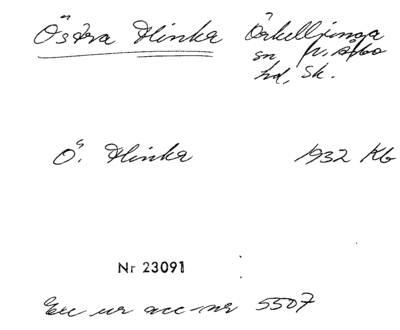 Östra Flinka Örkelljunga
sn N. Åsbo
hd, Sk.
Ö. Flinka 1932 Kb
Nr 23091
Exc ur acc-nr 5507